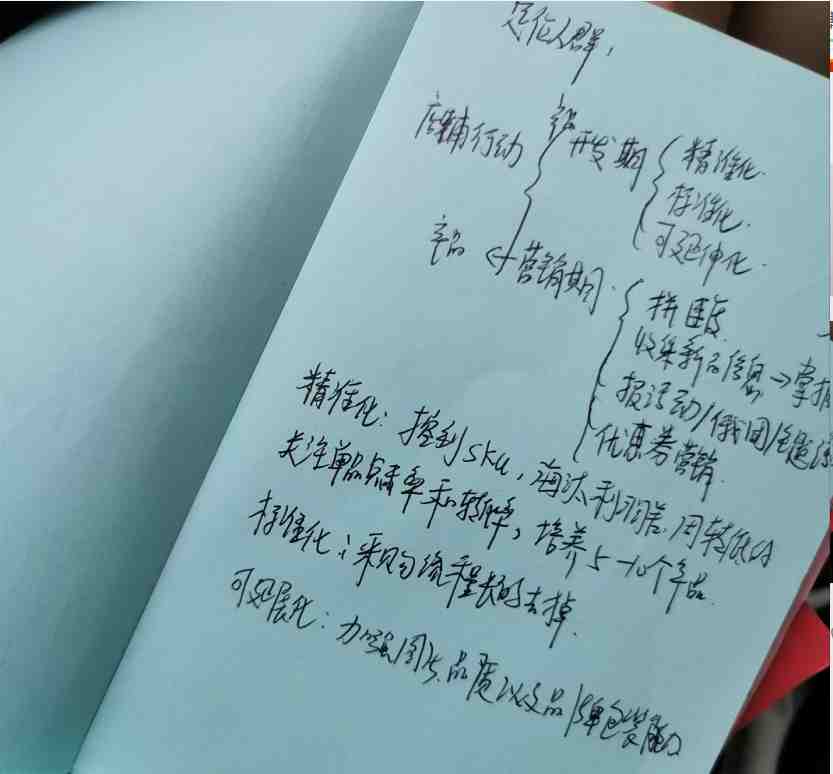 定位人群,
店铺行动 开发期 精准化
标准化
可延伸化
产品 营销期 拼团
收集新品信息→掌握
报活动/俄团/主题
优惠券营销
精准化:控制SKU,淘汰利润差,转化低
关注单品点击率和转化率,培养5-10个产品
标准化:采购流程长的去掉
可延展化:加强图片,品质以及品牌包装能力